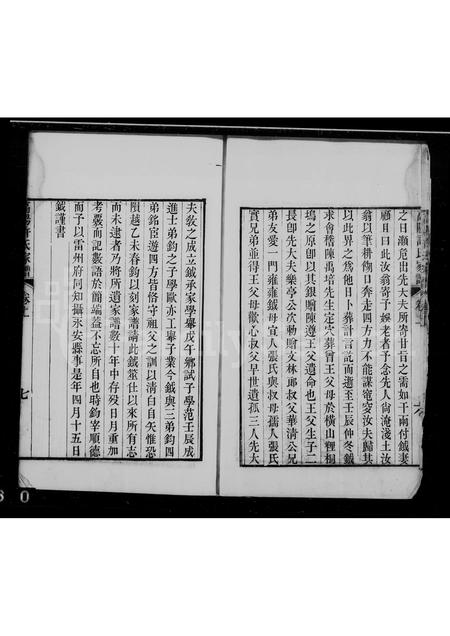 之日瀕危出先大夫所寄甘旨之需如干兩付鉞妻
顧且曰此汝翁寄予娛老者予念先人尙淹淺土汝
翁以筆耕餬口奔走四方力不能謀窀穸汝夫歸其
以此畀之爲他日卜葬計言訖而逝至壬辰仲冬鉞
求會稽陳禹培先生定穴葬曾王父母於橫山貍桐
塢之原卽以其銀贍陳遵王父遺命也王父生子二
長卽先大夫樂亭公次勅贈文林郎叔父華清公兄
弟友愛一門雍雍鉞母宜人張氏與叔母孺人張氏
實兄弟並得王父母歡心叔父早世遺孤三人先大
夫敎之成立鉞承家學舉戊午鄉試子學范壬辰成
進士弟鈞之子學歐亦工舉子業今鉞與三弟鈞四
弟銘宦遊四方皆恪守祖父之訓以清白自矢惟恐
隕越乙未春鈞以刻家譜請此鉞筮仕以來所有志
而未逮者乃將所遺家譜數十年中存歿日月重加
考覈而記數語於簡端蓋不忘所自也時鈞宰順德
而予以雷州府同知攝永安縣事是年四月十五日
鉞謹書
許氏家譜
卷上
七